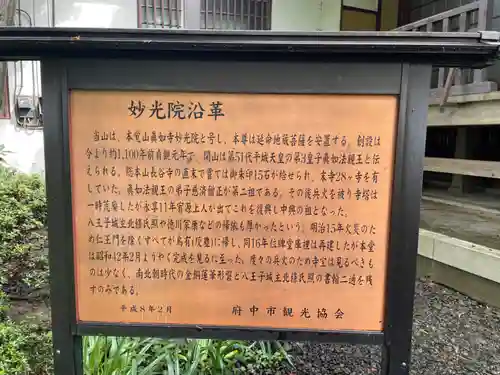 妙光院沿革
当山は、本覚山真如寺妙光院と号し、本尊は延命地蔵菩薩を安置する。創設は
今より約1,100年前貞観元年で、開山は第51代平城天皇の第3皇子真如法親王と伝
えられる。総本山長谷寺の直末で古くは御朱印15石が給せられ、末寺28ヶ寺を有
していた。真如法親王の弟子慈済僧正が第二祖である。その後兵火を被り寺塔は
一時荒廃したが永享11年宥源上人が出てこれを復興し中興の祖となった。
八王子城主北條氏照や徳川家康などの帰依も厚かったという。明治15年火災のた
め仁王門を除くすべてが烏有(灰塵)に帰し、同16年位牌堂庫裡は再建したが本堂
は昭和42年2月にようやく完成を見るに至った。度々の兵火のため寺宝は見るべきもの
は少なく、南北朝時代の金銅蓮華形磬と八王子城主北條氏照の書翰二通を残
すのみである。
平成8年2月 府中市観光協会